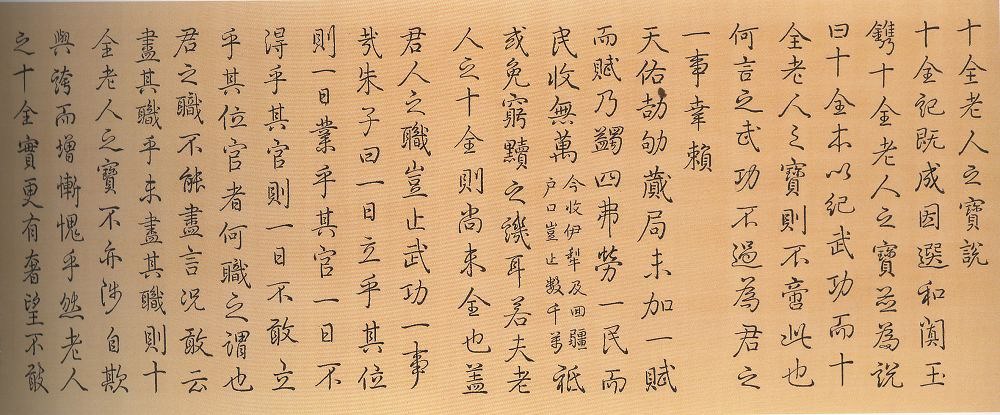 十全老人之寶說
十全記既成因選和闐玉
鐫十全老人之寶並為說
曰十全本以紀武功而十
全老人之寶則不啻此也
何言之武功不過為君之
一事幸賴
天佑劼劬蕆局未加一賦
而賦乃蠲四弗勞一民而
民收無萬今收伊犁及回疆戶口豈止數千萬祗
或免窮黷之譏耳若夫老
人之十全則尚未全也蓋
君人之職豈止武功一事
哉朱子曰一日立乎其位
則一日業乎其官一日不
得乎其官則一日不敢立
乎其位官者何職之謂也
君之職不能盡言況敢云
盡其職乎未盡其職則十
全老人之寶不亦涉自欺
與誇而增慚愧乎然老人
之十全實更有奢望不敢